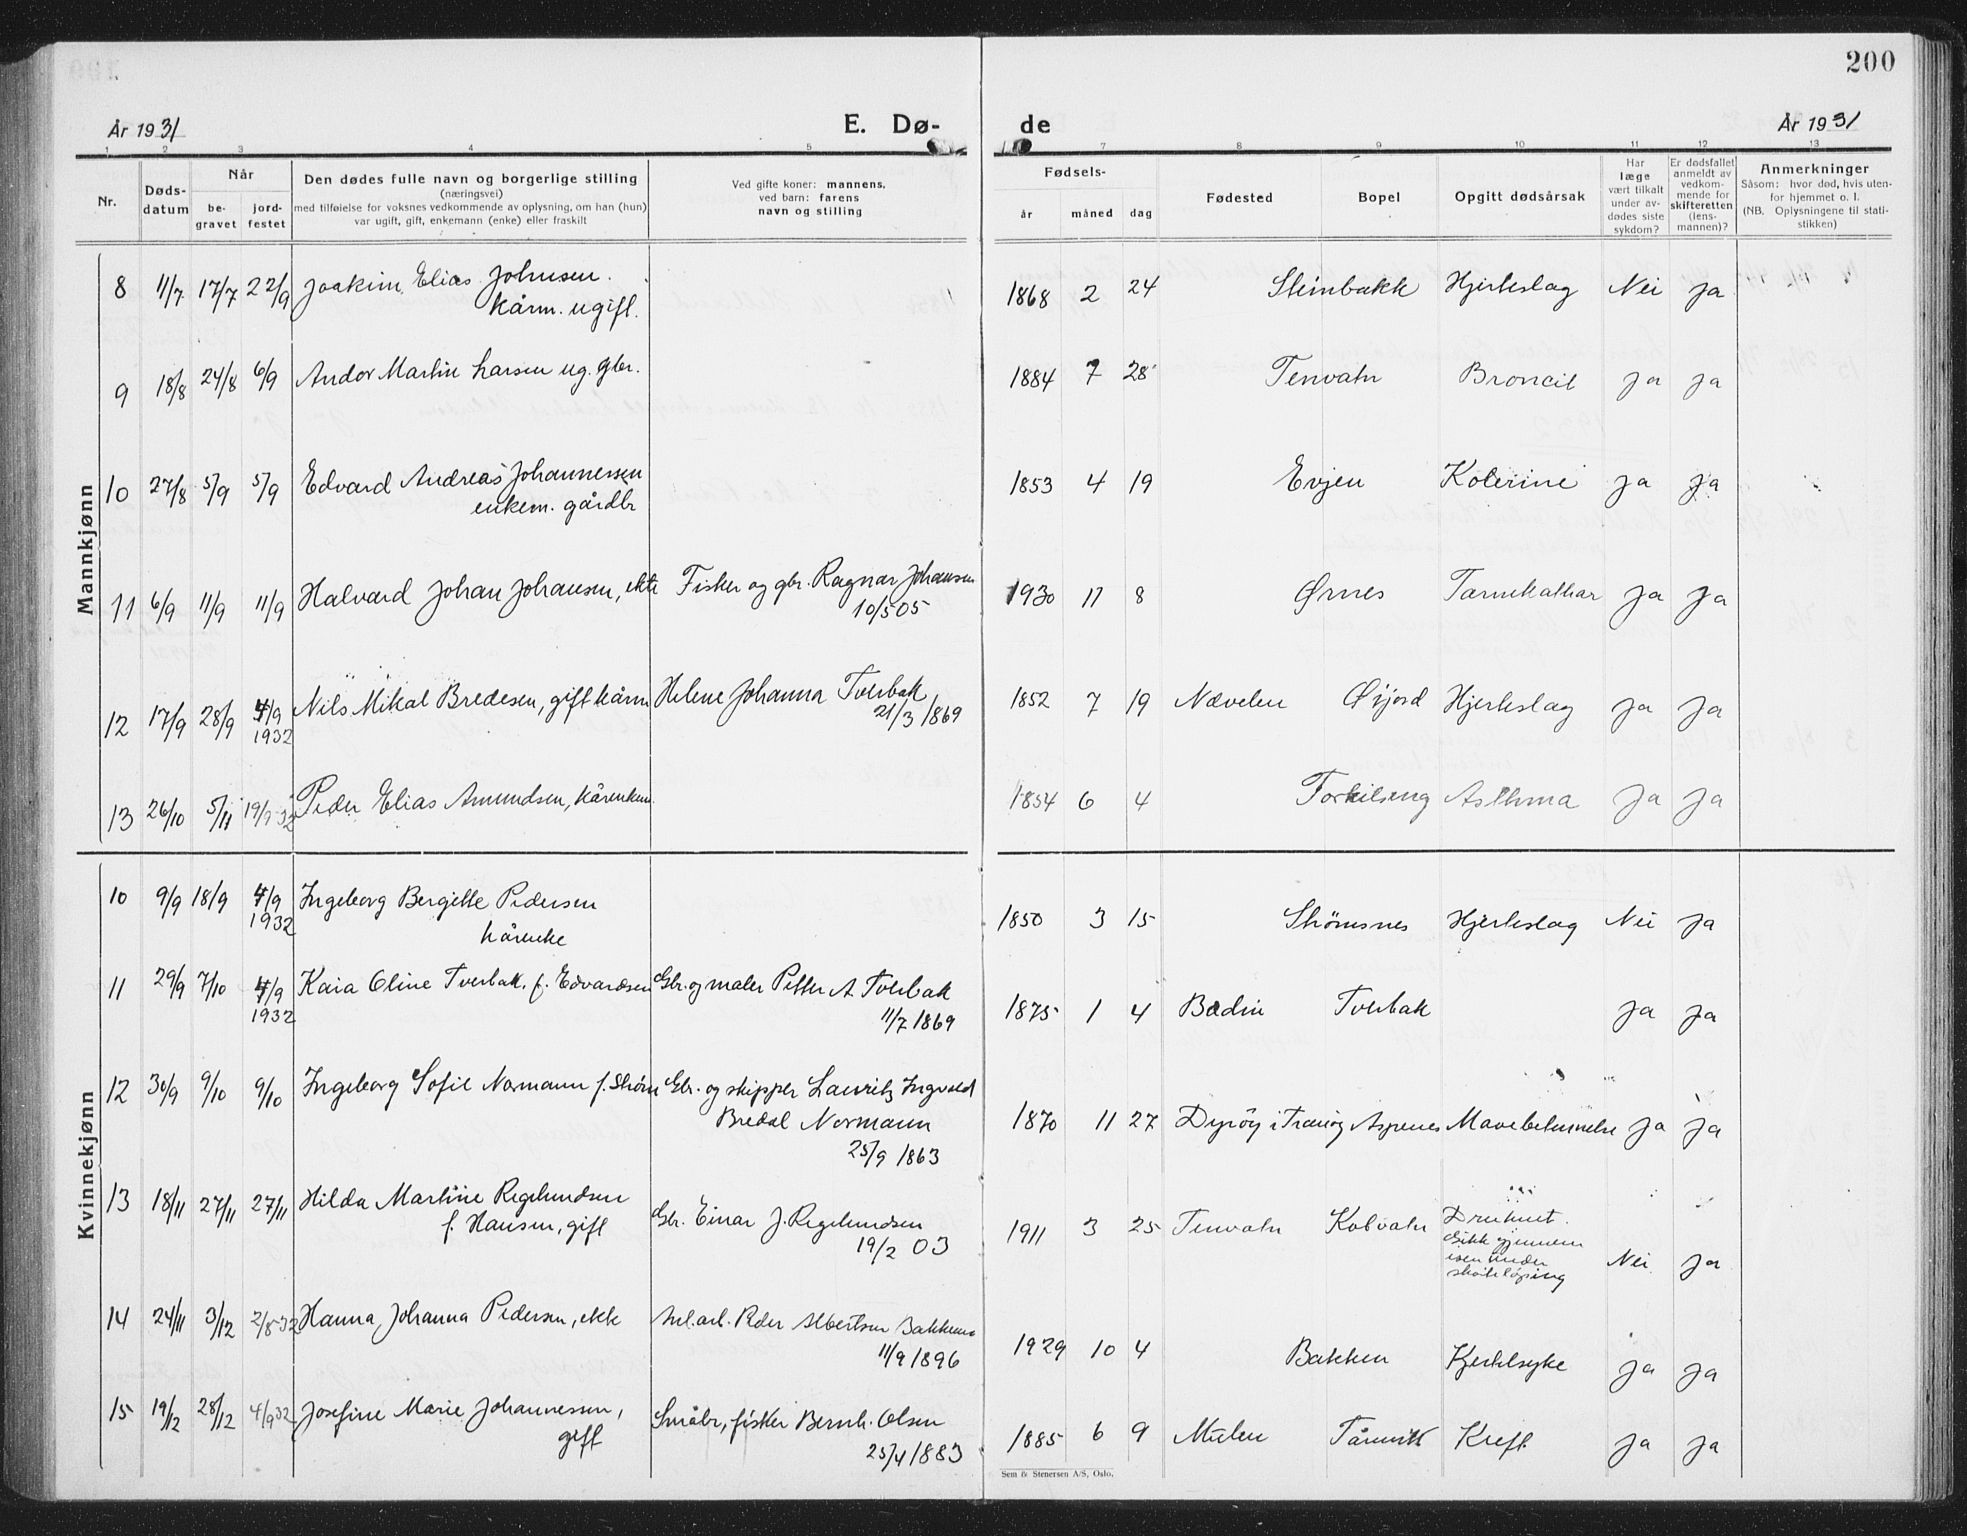 200
År 1931
E. Dø-
de
År 1931
1 2 3 4 5 7 8 9 10 11 12 13
Nr.
Døds-
datum
Når
be-
gravet
jord-
festet
Den dødes fulle navn og borgerlige stilling
(næringsvei)
med tilføielse for voksnes vedkommende av oplysning, om han (hun)
var ugift, gift, enkemann (enke) eller fraskilt
Ved gifte koner: mannens.
ved barn: farens
navn og stilling
Fødsels-
år måned dag
Fødested
Bopel
Opgitt dødsårsak
Har
læge
vært tilkalt
under av-
dødes siste
sykdom?
Er dødsfallet
anmeldt av
vedkom-
mende for
skifteretten
(lens-
mannen)?
Anmerkninger
Såsom: hvor død, hvis uten-
for hjemmet o. l.
(NB. Oplysningene til stati-
stikken)
Mannkjønn
8 11/7 17/7 22/9 Joakim Elias Johnsen. 1868 2 24 Steinbakk Hjerteslag Nei Ja
kårm. ugift.
9 18/8 24/8 6/9 Andor Martin Larsen ug. gbr. 1884 7 28 Tenvatn Broncit Ja Ja
10 27/8 5/9 5/9 Edvard Andreas Johannessen 1853 4 19 Evjen Kolerine Ja Ja
enkem. gårdbr
11 6/9 11/9 11/9 Halvard Johan Johansen, ekte Fisker og gbr. Ragnar Johansen 1930 11 8 Ørnes Tarmkathar Ja Ja
10/5 05
12 17/9 28/9 4/9 Nils Mikal Bredesen, gift kårm Helene Johanna Tverbak 1852 7 19 Nævelen Øijord Hjerteslag Ja Ja
1932 21/3 1869
13 26/10 5/11 19/9 32 Peder Elias Amundsen, kårenkem. 1854 6 4 Torkilseng Asthma Ja Ja
Kvinnekjønn
10 9/9 18/9 4/9 Ingeborg Bergitte Pedersen 1850 3 15 Strømsnes Hjerteslag Nei Ja
1932 kårenke
11 29/9 7/10 4/9 Kaia Oline Tverbak. f. Edvardsen Gbr. og maler Petter A Tverbak 1875 1 4 Bodin Tverbak Ja Ja
1932 11/7 1869
12 30/9 9/10 9/10 Ingeborg Sofie Normann f. Strøm Gbr. og skipper Lauritz Ingvald 1870 11 27 Dyrøy i Tranøy Aspenes Mavebetennelse Ja Ja
Bredal Normann
25/9 1863
13 18/11 27/11 27/11 Hilda Martine Regelundsen Gbr. Einar J. Regelundsen 1911 3 25 Tenvatn Kobvatn Druknet.
f. Hansen, gift 19/2 03 Gikk gjennem
isen under
skøiteløping Nei Ja
14 24/11 3/12 2/8 32 Hanna Johanna Pedersen, ekte Peder Albertsen Bakken 1929 10 4 Bakken Ja Ja
11/9 1896
15 19/12 28/12 4/9 32 Josefine Marie Johannessen, Småbr., fisker Bernh. Olsen 1885 6 9 Mulen Tårnvik Kreft. Ja Ja
gift 25/4 1883
Sem & Stenersen A/S, Oslo.